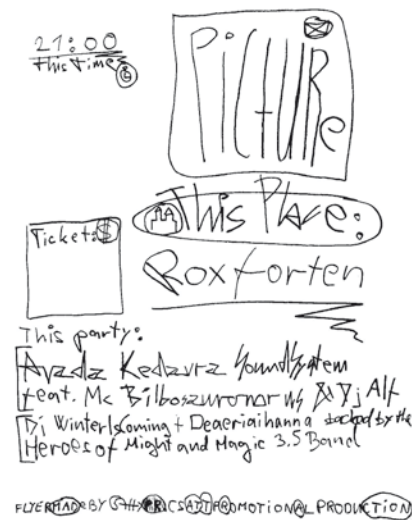 21:00
This Time:
Picture
This Place:
Tickets:$
Roxforten
This party:
Avada Kedavra Soundsystem
feat. Mc Bilboszuronor vs Dj Alf
Dj WinterIsComing + Deaeriaihanna backed by the
Heroes of Might and Magic 3.5 Band
FLYER MADE BY PROMOTIONAL PRODUCTION